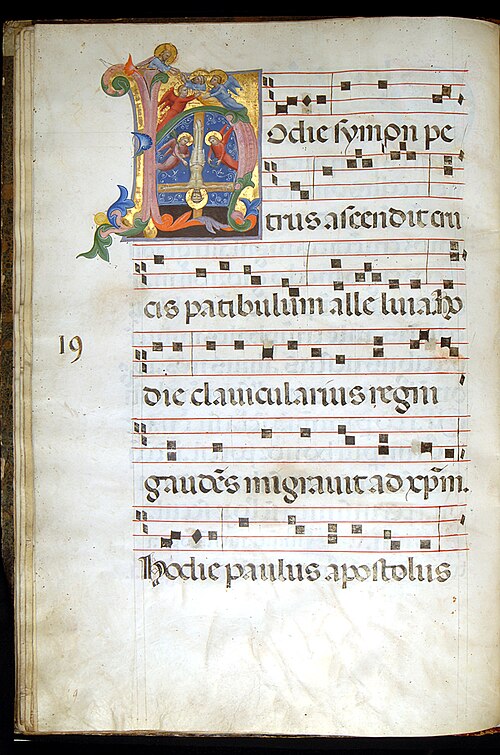 Hodie symon pe
trus ascendit cru
cis patibulum alle luia ho
die clavicularius regni
19
gaudēs migravit ad xp̄m.
Hodie paulus apostolus